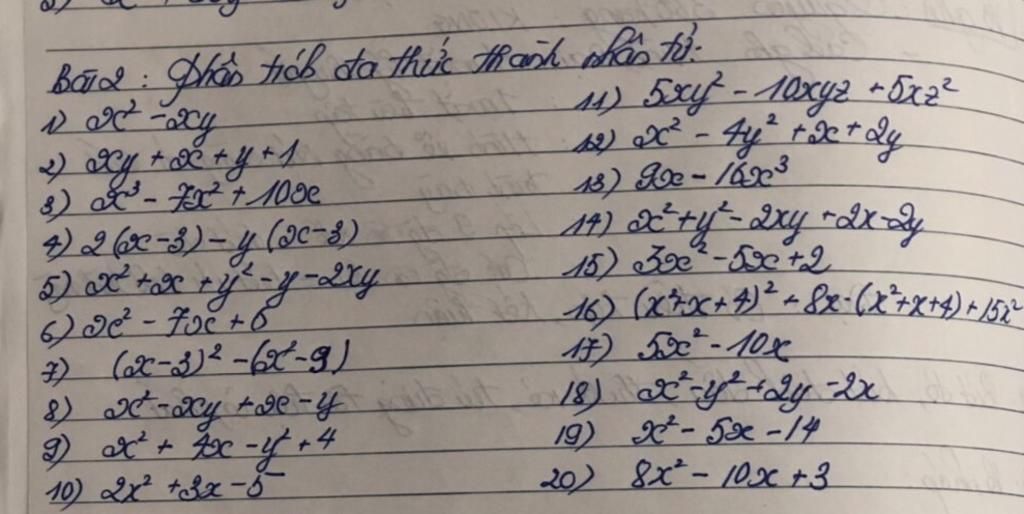 Bài 2: Phân tích đa thức thành nhân tử:
1) x² - xy
2) xy + x + y + 1
3) x³ - 7x² + 10x
4) 2(x-3) - y(x-3)
5) x² + x + y² - y - 2xy
6) x² - 7x + 6
7) (x-3)² - (x²-9)
8) x² - xy + x - y
9) x² + 4x - y² + 4
10) 2x² + 3x - 5
11) 5xy² - 10xyz + 5xz²
12) x² - 4y² + x + 2y
13) 9x - 16x³
14) x² + y² - 2xy + 2x - 2y
15) 3x² - 5x + 2
16) (x²+x+4)² + 8x·(x²+x+4) + 15x²
17) 5x² - 10x
18) x² - y² + 2y - 2x
19) x² - 5x - 14
20) 8x² - 10x + 3